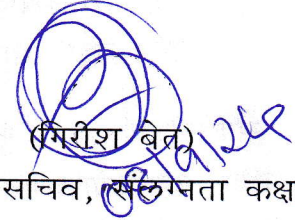 (गिरीश बेत)
सचिव, संलग्नता कक्ष